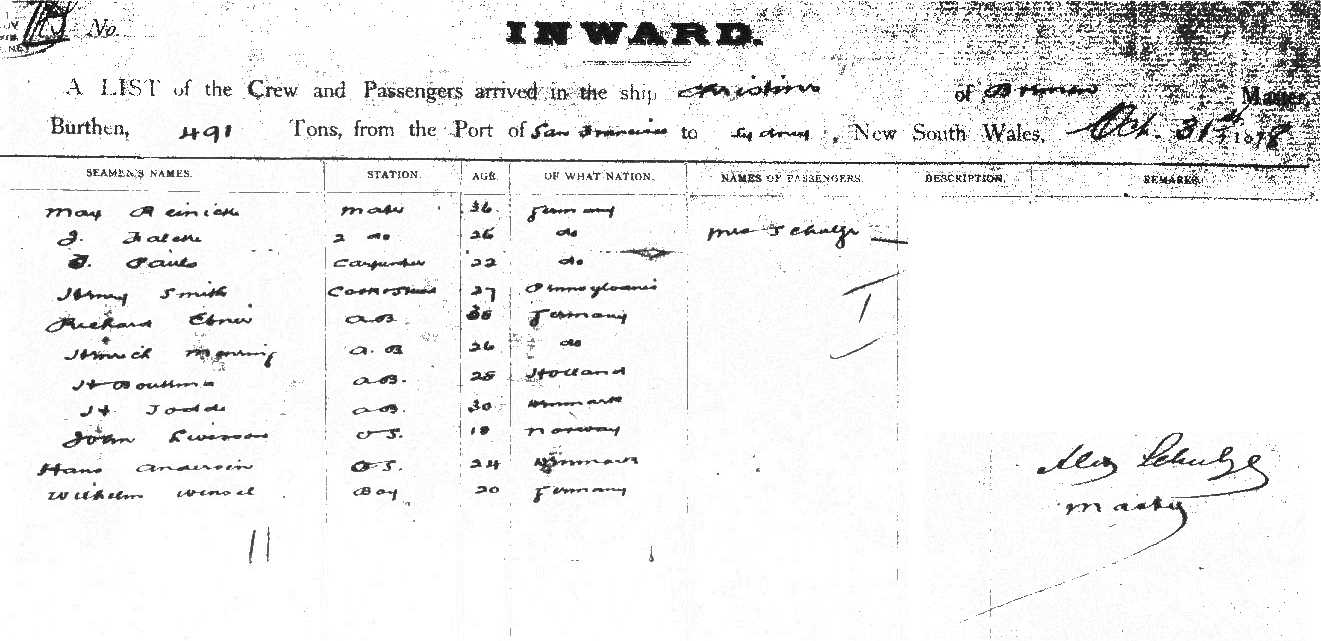 No.
INWARD.
A LIST of the Crew and Passengers arrived in the ship of Bremen Master,
Burthen, 491 Tons, from the Port of San Francisco to Sydney, New South Wales, Oct. 31st 1878
SEAMEN'S NAMES. STATION. AGE. OF WHAT NATION. NAMES OF PASSENGERS. DESCRIPTION. REMARKS.
Max Reinicke Mate 36 Germany
J. 2 do 26 do Mrs Schulze
J. Pauls Carpenter 22 do
Henry Smith 27 Pennsylvania
Richard a.B. 35 Germany
Heinrich a.B 26 do
H a.B. 25 Holland
H. a.B. 30 Denmark
John O.S. 18 Norway
Hans Andersen O.S. 24 Denmark
Wilhelm Boy 20 Germany
11
1
Alex Schulze
Master